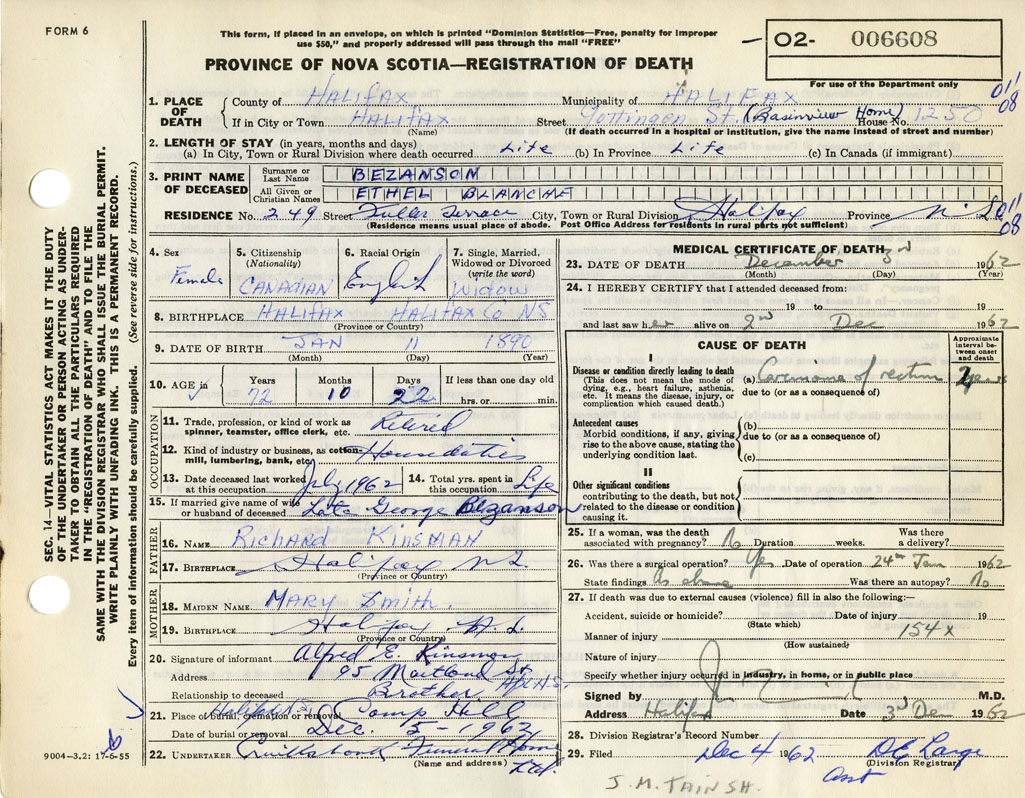 FORM 6
This form, if placed in an envelope, on which is printed "Dominion Statistics—Free, penalty for improper
use $50," and properly addressed will pass through the mail "FREE"
O2- 006608
PROVINCE OF NOVA SCOTIA—REGISTRATION OF DEATH
For use of the Department only
01/08
1. PLACE OF DEATH
County of HALIFAX Municipality of HALIFAX
If in City or Town HALIFAX Street Gottingen St. (Basinview Home) House No. 1250
(Name) (If death occurred in a hospital or institution, give the name instead of street and number)
2. LENGTH OF STAY (in years, months and days)
(a) In City, Town or Rural Division where death occurred Life (b) In Province Life (c) In Canada (if immigrant)
3. PRINT NAME OF DECEASED
Surname or Last Name BEZANSON
All Given or Christian Names ETHEL BLANCHE
RESIDENCE No. 249 Street Fuller Terrace City, Town or Rural Division Halifax Province N.S. 01/08
(Residence means usual place of abode. Post Office Address for residents in rural parts not sufficient)
4. Sex Female
5. Citizenship (Nationality) CANADIAN
6. Racial Origin English
7. Single, Married, Widowed or Divorced (write the word) Widow
8. BIRTHPLACE HALIFAX HALIFAX Co NS
(Province or Country)
9. DATE OF BIRTH JAN 11 1890
(Month) (Day) (Year)
10. AGE Years 72 Months 10 Days 22 If less than one day old hrs. or min.
OCCUPATION
11. Trade, profession, or kind of work as spinner, teamster, office clerk, etc. Retired
12. Kind of industry or business, as cotton-mill, lumbering, bank, etc. Houseduties
13. Date deceased last worked at this occupation July 1962
14. Total yrs. spent in this occupation Life
15. If married give name of wife or husband of deceased Late George Bezanson
FATHER
16. NAME Richard Kinsman
17. BIRTHPLACE Halifax N.S.
(Province or Country)
MOTHER
18. MAIDEN NAME Mary Smith
19. BIRTHPLACE Halifax N.S.
(Province or Country)
20. Signature of informant Alfred E. Kinsman
Address 95 Maitland St. Hfx N.S.
Relationship to deceased Brother
21. Place of burial, cremation or removal Halifax N.S. Camp Hill
Date of burial or removal Dec. 5 - 1962
22. UNDERTAKER Cruikshank Funeral Home Ltd.
(Name and address)
9004-3.2: 17-6-55
SEC. 14—VITAL STATISTICS ACT MAKES IT THE DUTY
OF THE UNDERTAKER OR PERSON ACTING AS UNDER-
TAKER TO OBTAIN ALL THE PARTICULARS REQUIRED
IN THE "REGISTRATION OF DEATH" AND TO FILE THE
SAME WITH THE DIVISION REGISTRAR WHO SHALL ISSUE THE BURIAL PERMIT.
WRITE PLAINLY WITH UNFADING INK. THIS IS A PERMANENT RECORD.
Every item of information should be carefully supplied. (See reverse side for instructions.)
MEDICAL CERTIFICATE OF DEATH
23. DATE OF DEATH December 3rd 1962
(Month) (Day) (Year)
24. I HEREBY CERTIFY that I attended deceased from:
19 to 19
and last saw her alive on 2nd Dec 1962
CAUSE OF DEATH
Approximate interval between onset and death
I
Disease or condition directly leading to death
(This does not mean the mode of dying, e.g., heart failure, asthenia, etc. It means the disease, injury, or complication which caused death.)
(a) Carcinoma of rectum 2 years
due to (or as a consequence of)
Antecedent causes
Morbid conditions, if any, giving rise to the above cause, stating the underlying condition last.
(b)
due to (or as a consequence of)
(c)
II
Other significant conditions
contributing to the death, but not related to the disease or condition causing it.
25. If a woman, was the death associated with pregnancy? No Duration weeks. Was there a delivery?
26. Was there a surgical operation? Yes Date of operation 24th Jan 1962
State findings As above Was there an autopsy? No
27. If death was due to external causes (violence) fill in also the following:—
Accident, suicide or homicide? Date of injury 19
(State which)
Manner of injury 154x
(How sustained)
Nature of injury
Specify whether injury occurred in industry, in home, or in public place
Signed by M.D.
Address Halifax Date 3rd Dec 1962
28. Division Registrar's Record Number
29. Filed Dec 4 1962 D.E. Large
(Division Registrar)
Asst
J. M. TAINSH.